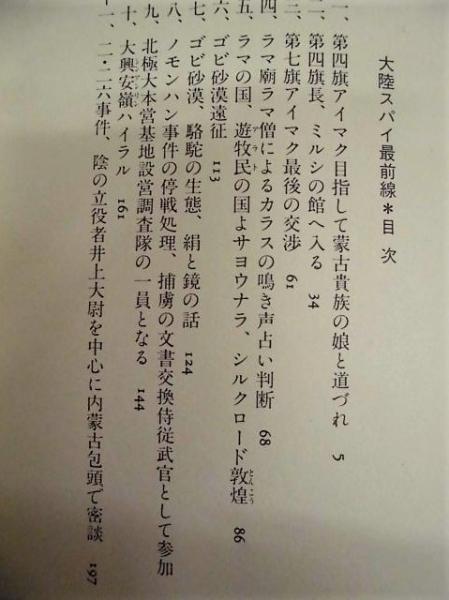 大陸スパイ最前線＊目次
一、第四旗アイマク目指して蒙古貴族の娘と道づれ 5
二、第四旗長、ミルシの館へ入る 34
三、第七旗アイマク最後の交渉 61
四、ラマ廟ラマ僧によるカラスの鳴き声占い判断 68
五、ラマの国、遊牧民の国よサヨウナラ、シルクロード敦煌 86
アラト
とんこう
六、ゴビ砂漠遠征 113
七、ゴビ砂漠、駱駝の生態、絹と鏡の話 124
八、ノモンハン事件の停戦処理、捕虜の文書交換侍従武官として参加
九、北極大本営基地設営調査隊の一員となる 144
十、大興安嶺ハイラル 161
十一、二・二六事件、陰の立役者井上大尉を中心に内蒙古包頭で密談 197